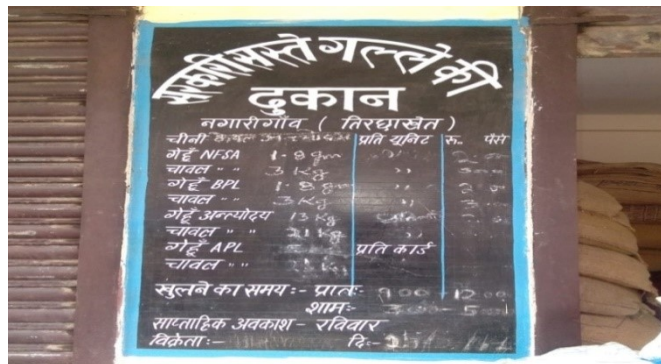 सरकारी सस्ते गल्ले की
दुकान
नगारीगाँव ( तिरछाखेत )
चीनी केवल अन्त्योदय प्रति यूनिट रु. पैसे
गेहूँ NFSA 1.8 gm ,,
चावल " " 3 Kg ,,
गेहूँ BPL 1.8 gm ,,
चावल 3 Kg ,,
गेहूँ अन्त्योदय 13 Kg
चावल " " 21 Kg
गेहूँ APL प्रति कार्ड
चावल " " Kg
खुलने का समय :- प्रातः- 9.00 - 12.00
शामः- 3.00 - 5.00
साप्ताहिक अवकाश - रविवार
विक्रेता :- दिः-